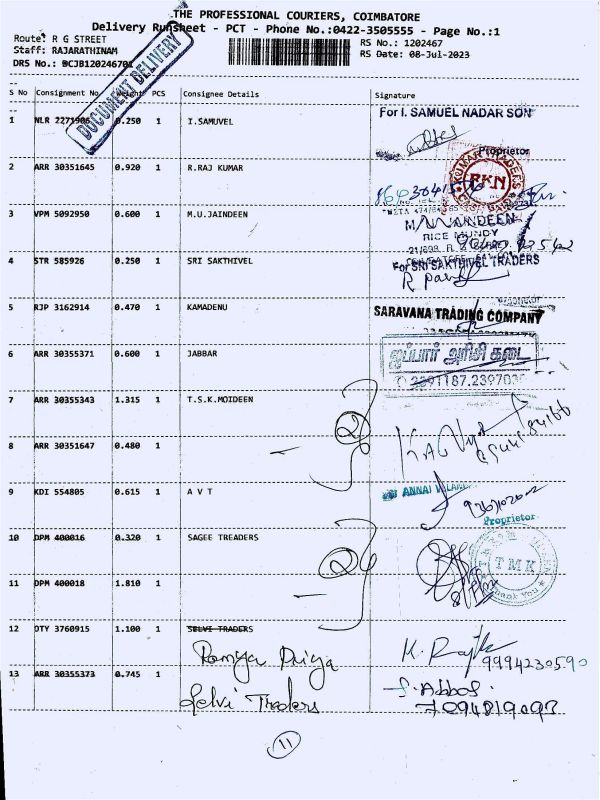 THE PROFESSIONAL COURIERS, COIMBATORE
Delivery Runsheet - PCT - Phone No.:0422-3505555 - Page No.:1
Route: R G STREET
RS No.: 1202467
Staff: RAJARATHINAM
RS Date: 08-Jul-2023
DRS No.:
DOCUMENT DELIVERY
S No Consignment No Weight PCS Consignee Details Signature
1 NLR 0.250 1 I.SAMUVEL
For I. SAMUEL NADAR SON
Proprietor
2 ARR 30351645 0.920 1 R.RAJ KUMAR
RKN
3 VPM 5092950 0.600 1 M.U.JAINDEEN
RICE MUNDY
4 STR 585926 0.250 1 SRI SAKTHIVEL
For SRI SAKTHIVEL TRADERS
5 RJP 3162914 0.470 1 KAMADENU
SARAVANA TRADING COMPANY
6 ARR 30355371 0.600 1 JABBAR
ஜப்பார் அரிசி கடை
7 ARR 30355343 1.315 1 T.S.K.MOIDEEN
8 ARR 30351647 0.480 1
9 KDI 554805 0.615 1 A V T
ANNAI
Proprietor
10 DPM 400016 0.320 1 SAGEE TREADERS
TMK
Thank You
11 DPM 400018 1.810 1
12 DTY 3760915 1.100 1 SELVI TRADERS
Ramya Priya
K. Rajk
9994230590
13 ARR 30355373 0.745 1
Selvi Traders
S. Abbas
7094819097
11